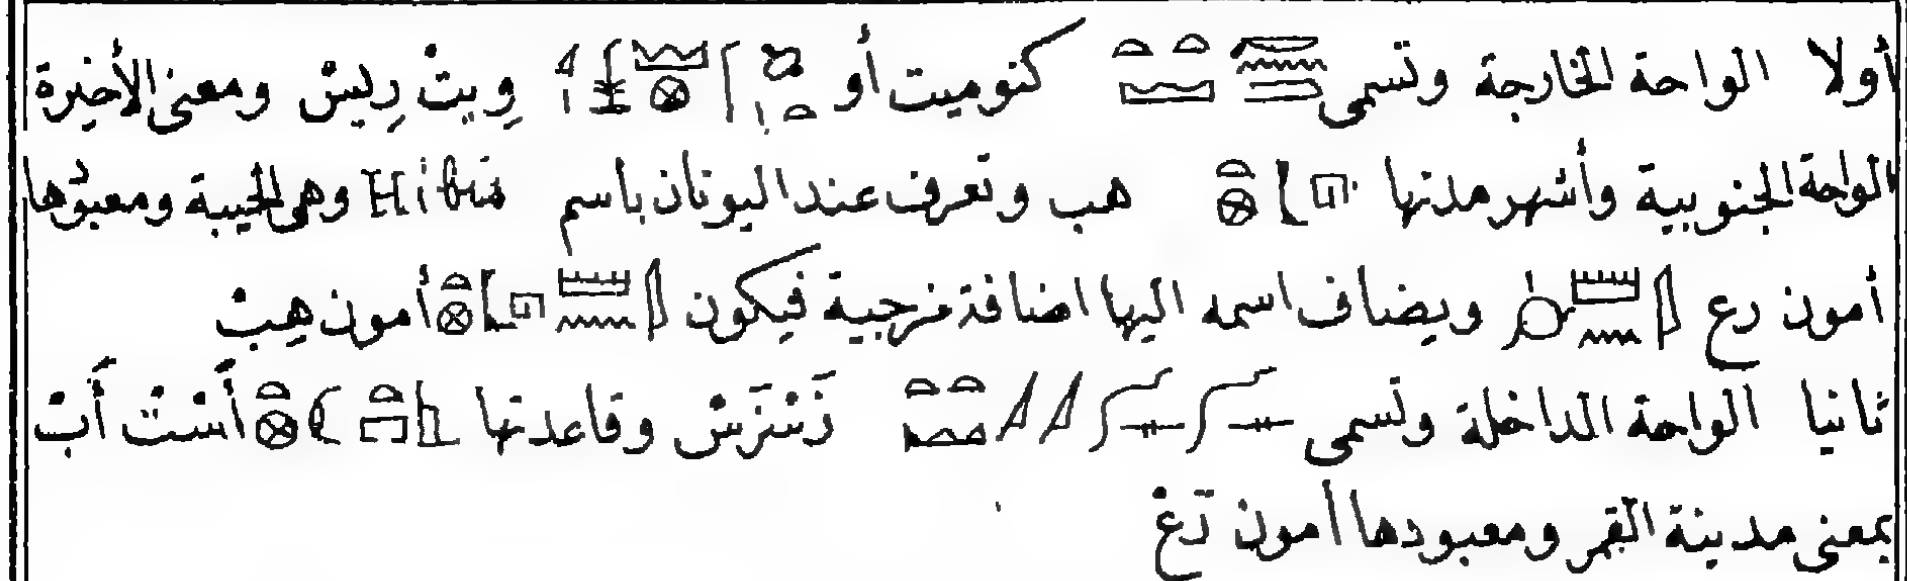 أولا الواحة الخارجة وتسمى كنوميت أو وِيتْ رِيسْ ومعنى الأخيرة
الواحة الجنوبية وأشهر مدنها هب وتعرف عند اليونان باسم Hibis وهى الحيبة ومعبودها
أمون رع ويضاف اسمه اليها اضافة مزجية فيكون أمون هِبْ
ثانيا الواحة الداخلة وتسمى زَسْزَسْ وقاعدتها أَسْتْ أَبْ
بمعنى مدينة القمر ومعبودها أمون رَعْ